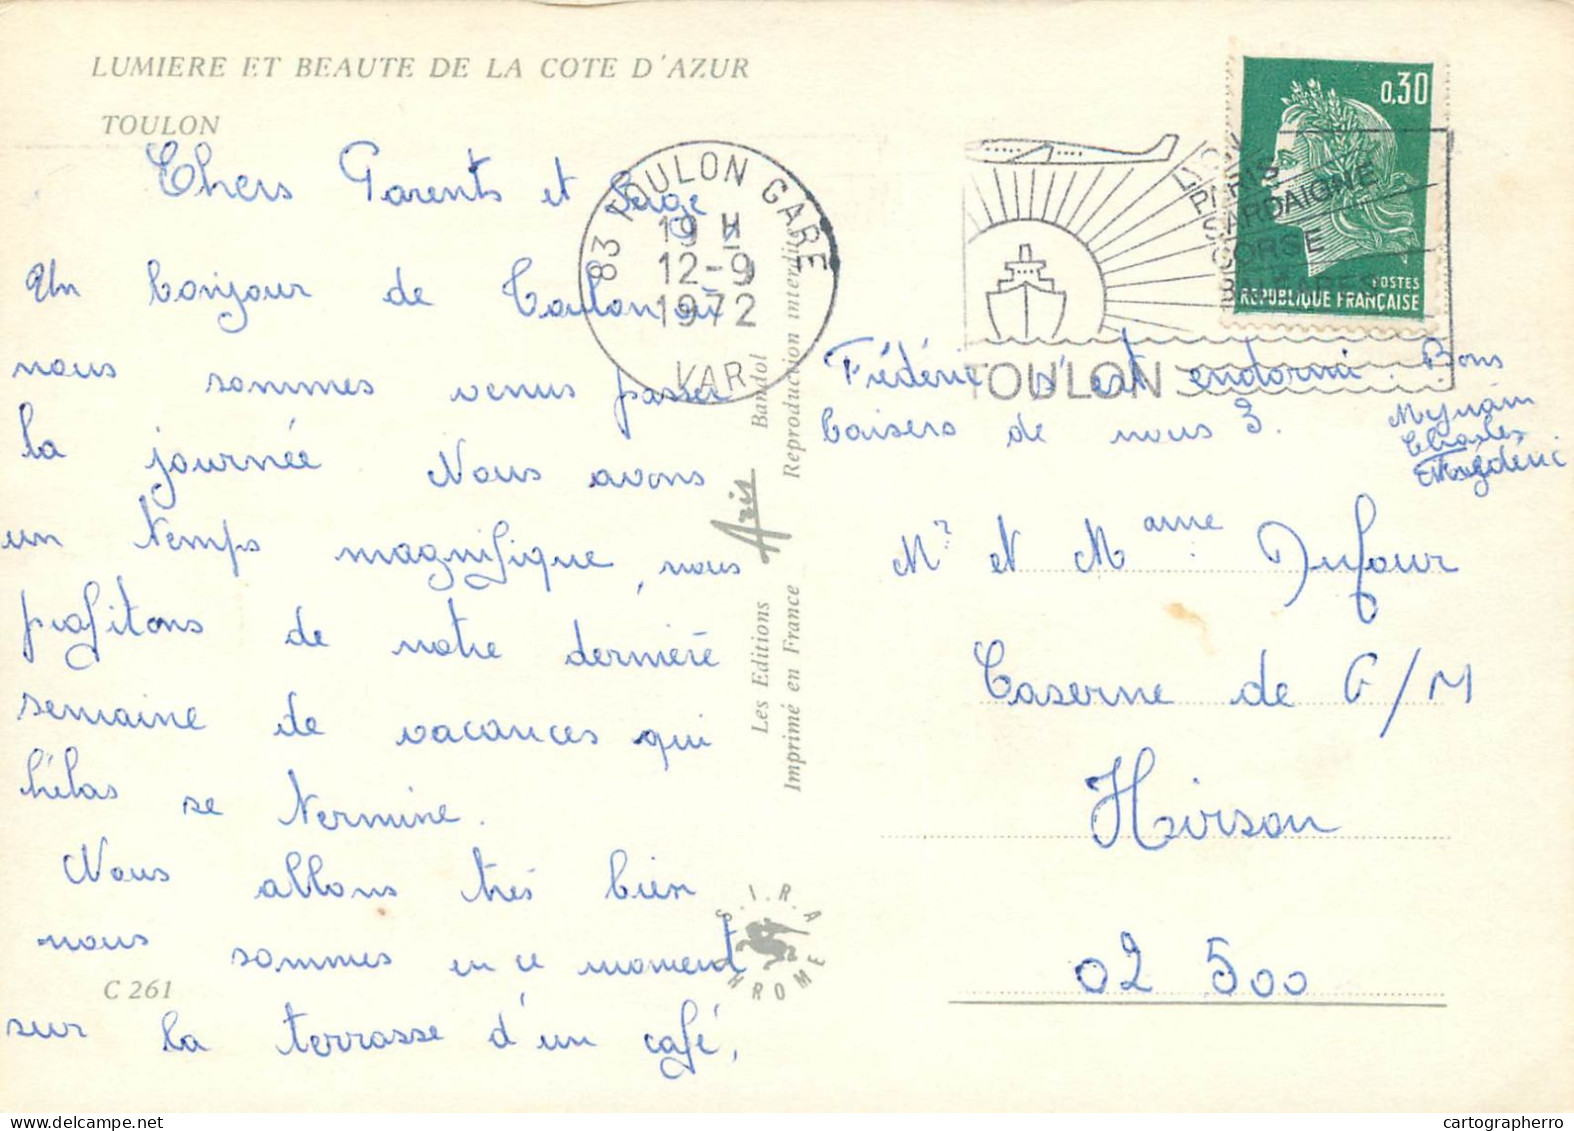 LUMIERE ET BEAUTE DE LA COTE D'AZUR
TOULON
Chers Parents et Serge
Un bonjour de Toulon où
nous sommes venus passer
la journée Nous avons
un temps magnifique, nous
profitons de notre dernière
semaine de vacances qui
hélas se termine.
Nous allons très bien
nous sommes en ce moment
sur la terrasse d'un café,
C 261
83 TOULON GARE
19 H
12-9
1972
VAR
Les Editions Aris Bandol
Imprimé en France Reproduction interdite
S.I.R.A
CHROME
LYON
PARIS
SARDAIGNE
CORSE
BALEARES
TOULON
0,30
POSTES
REPUBLIQUE FRANÇAISE
Frédéric s'est endormi. Bons
baisers de nous 3.
Charles
Frédéric
Mr et Mame Dufour
Caserne de G/M
Hirson
02 500
cartographerro